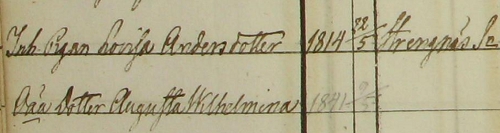 Inh Pigan Lovisa Andersdotter 1814 22/5 Strengnäs
Oäa dotter Augusta Wilhelmina 1841